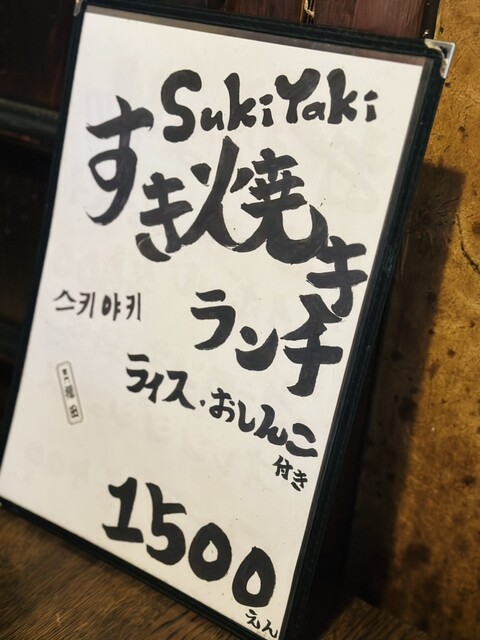 SukiYaki
すき焼き
ランチ
스키야키
ライス・おしんこ
付き
1500
えん